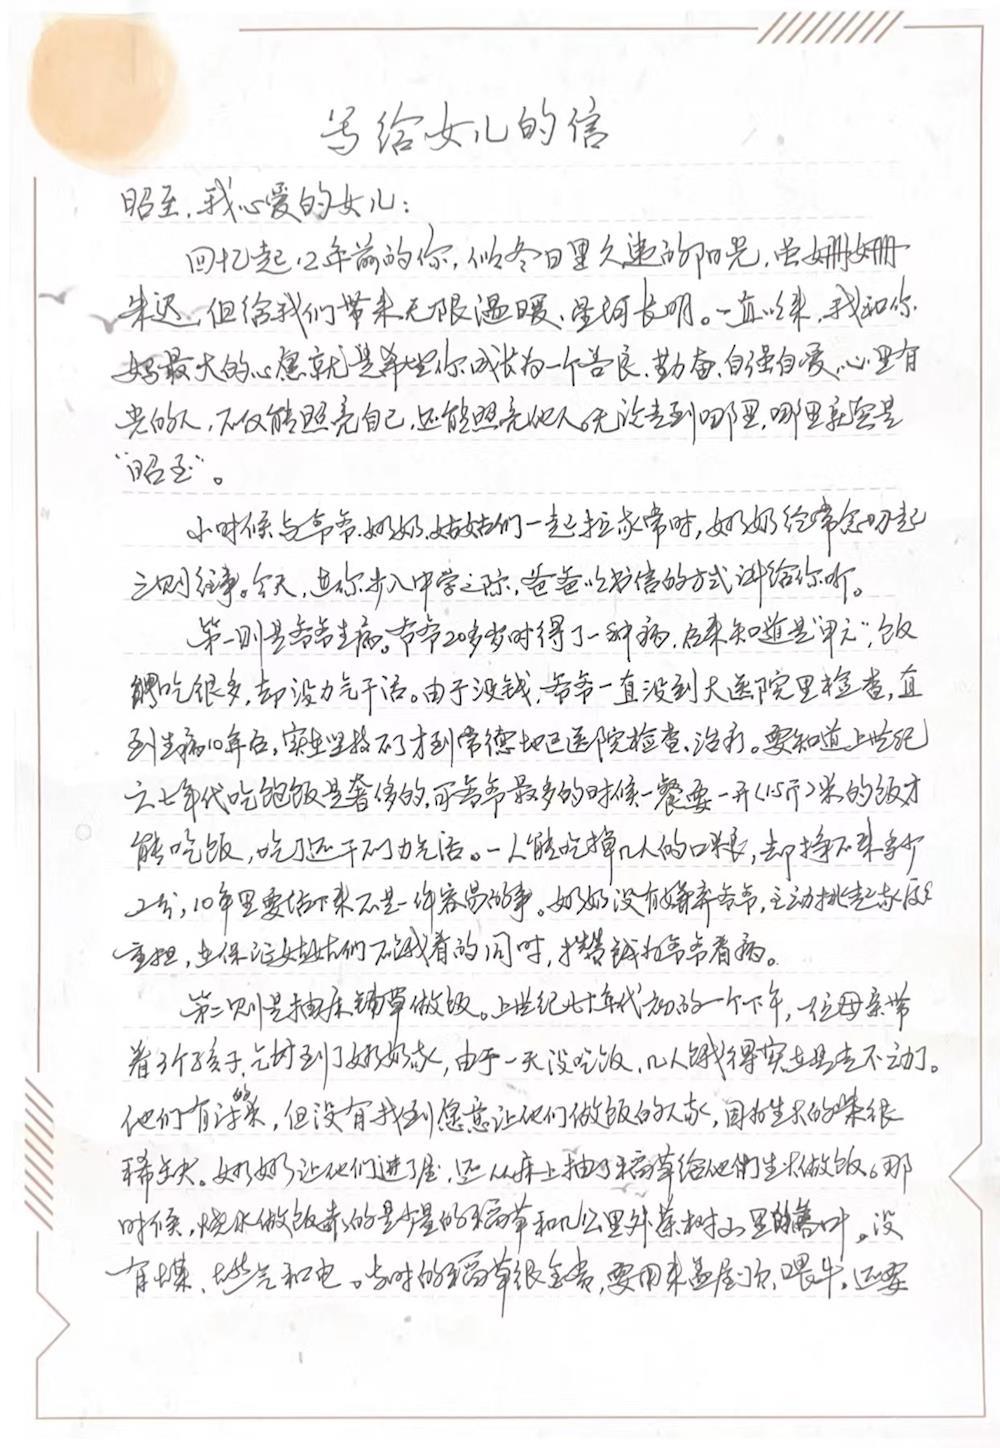 写给女儿的信
昭至,我心爱的女儿:
回忆起12年前的你,似冬日里久违的阳光,虽姗姗
来迟,但给我们带来无限温暖、星河长明。一直以来,我和你
妈最大的心愿就是希望你成长为一个善良、勤奋、自强自爱,心里有
光的人,不仅能照亮自己,还能照亮他人。无论走到哪里,哪里就会是
“昭至”。
小时候与爷爷、奶奶、姑姑们一起拉家常时,奶奶经常会叨起
三则往事。今天,在你步入中学之际,爸爸以书信的方式讲给你听。
第一则是爷爷生病。爷爷20多岁时得了一种病,后来知道是“甲亢”,饭
能吃很多,却没力气干活。由于没钱,爷爷一直没到大医院里检查,直
到生病10年后,实在坚持不了才到常德地区医院检查、治疗。要知道上世纪
六七年代吃饱饭是奢侈的,可爷爷最多的时候一餐要一升(1.5斤)米的饭才
能吃饭,吃了还干不了力气活。一人能吃掉几人的口粮,却挣不来多少
工分,10年里要活下来不是一件容易的事。奶奶没有嫌弃爷爷,主动挑起家庭
重担,在保证姑姑们不饿着的同时,攒钱为爷爷看病。
第二则是抽床铺草做饭。上世纪七十年代初的一个下午,一位母亲带
着3个孩子,乞讨到了奶奶家,由于一天没吃饭,几人饿得实在是走不动了。
他们有讨的米,但没有找到愿意让他们做饭的人家,因为生火的柴很
稀缺。奶奶让他们进了屋,还从床上抽了稻草给他们生火做饭。那
时候,烧水做饭靠的是少量的稻草和几公里外茶树山里的落叶。没
有煤、燃气和电。当时的稻草很金贵,要用来盖屋顶、喂牛,还要